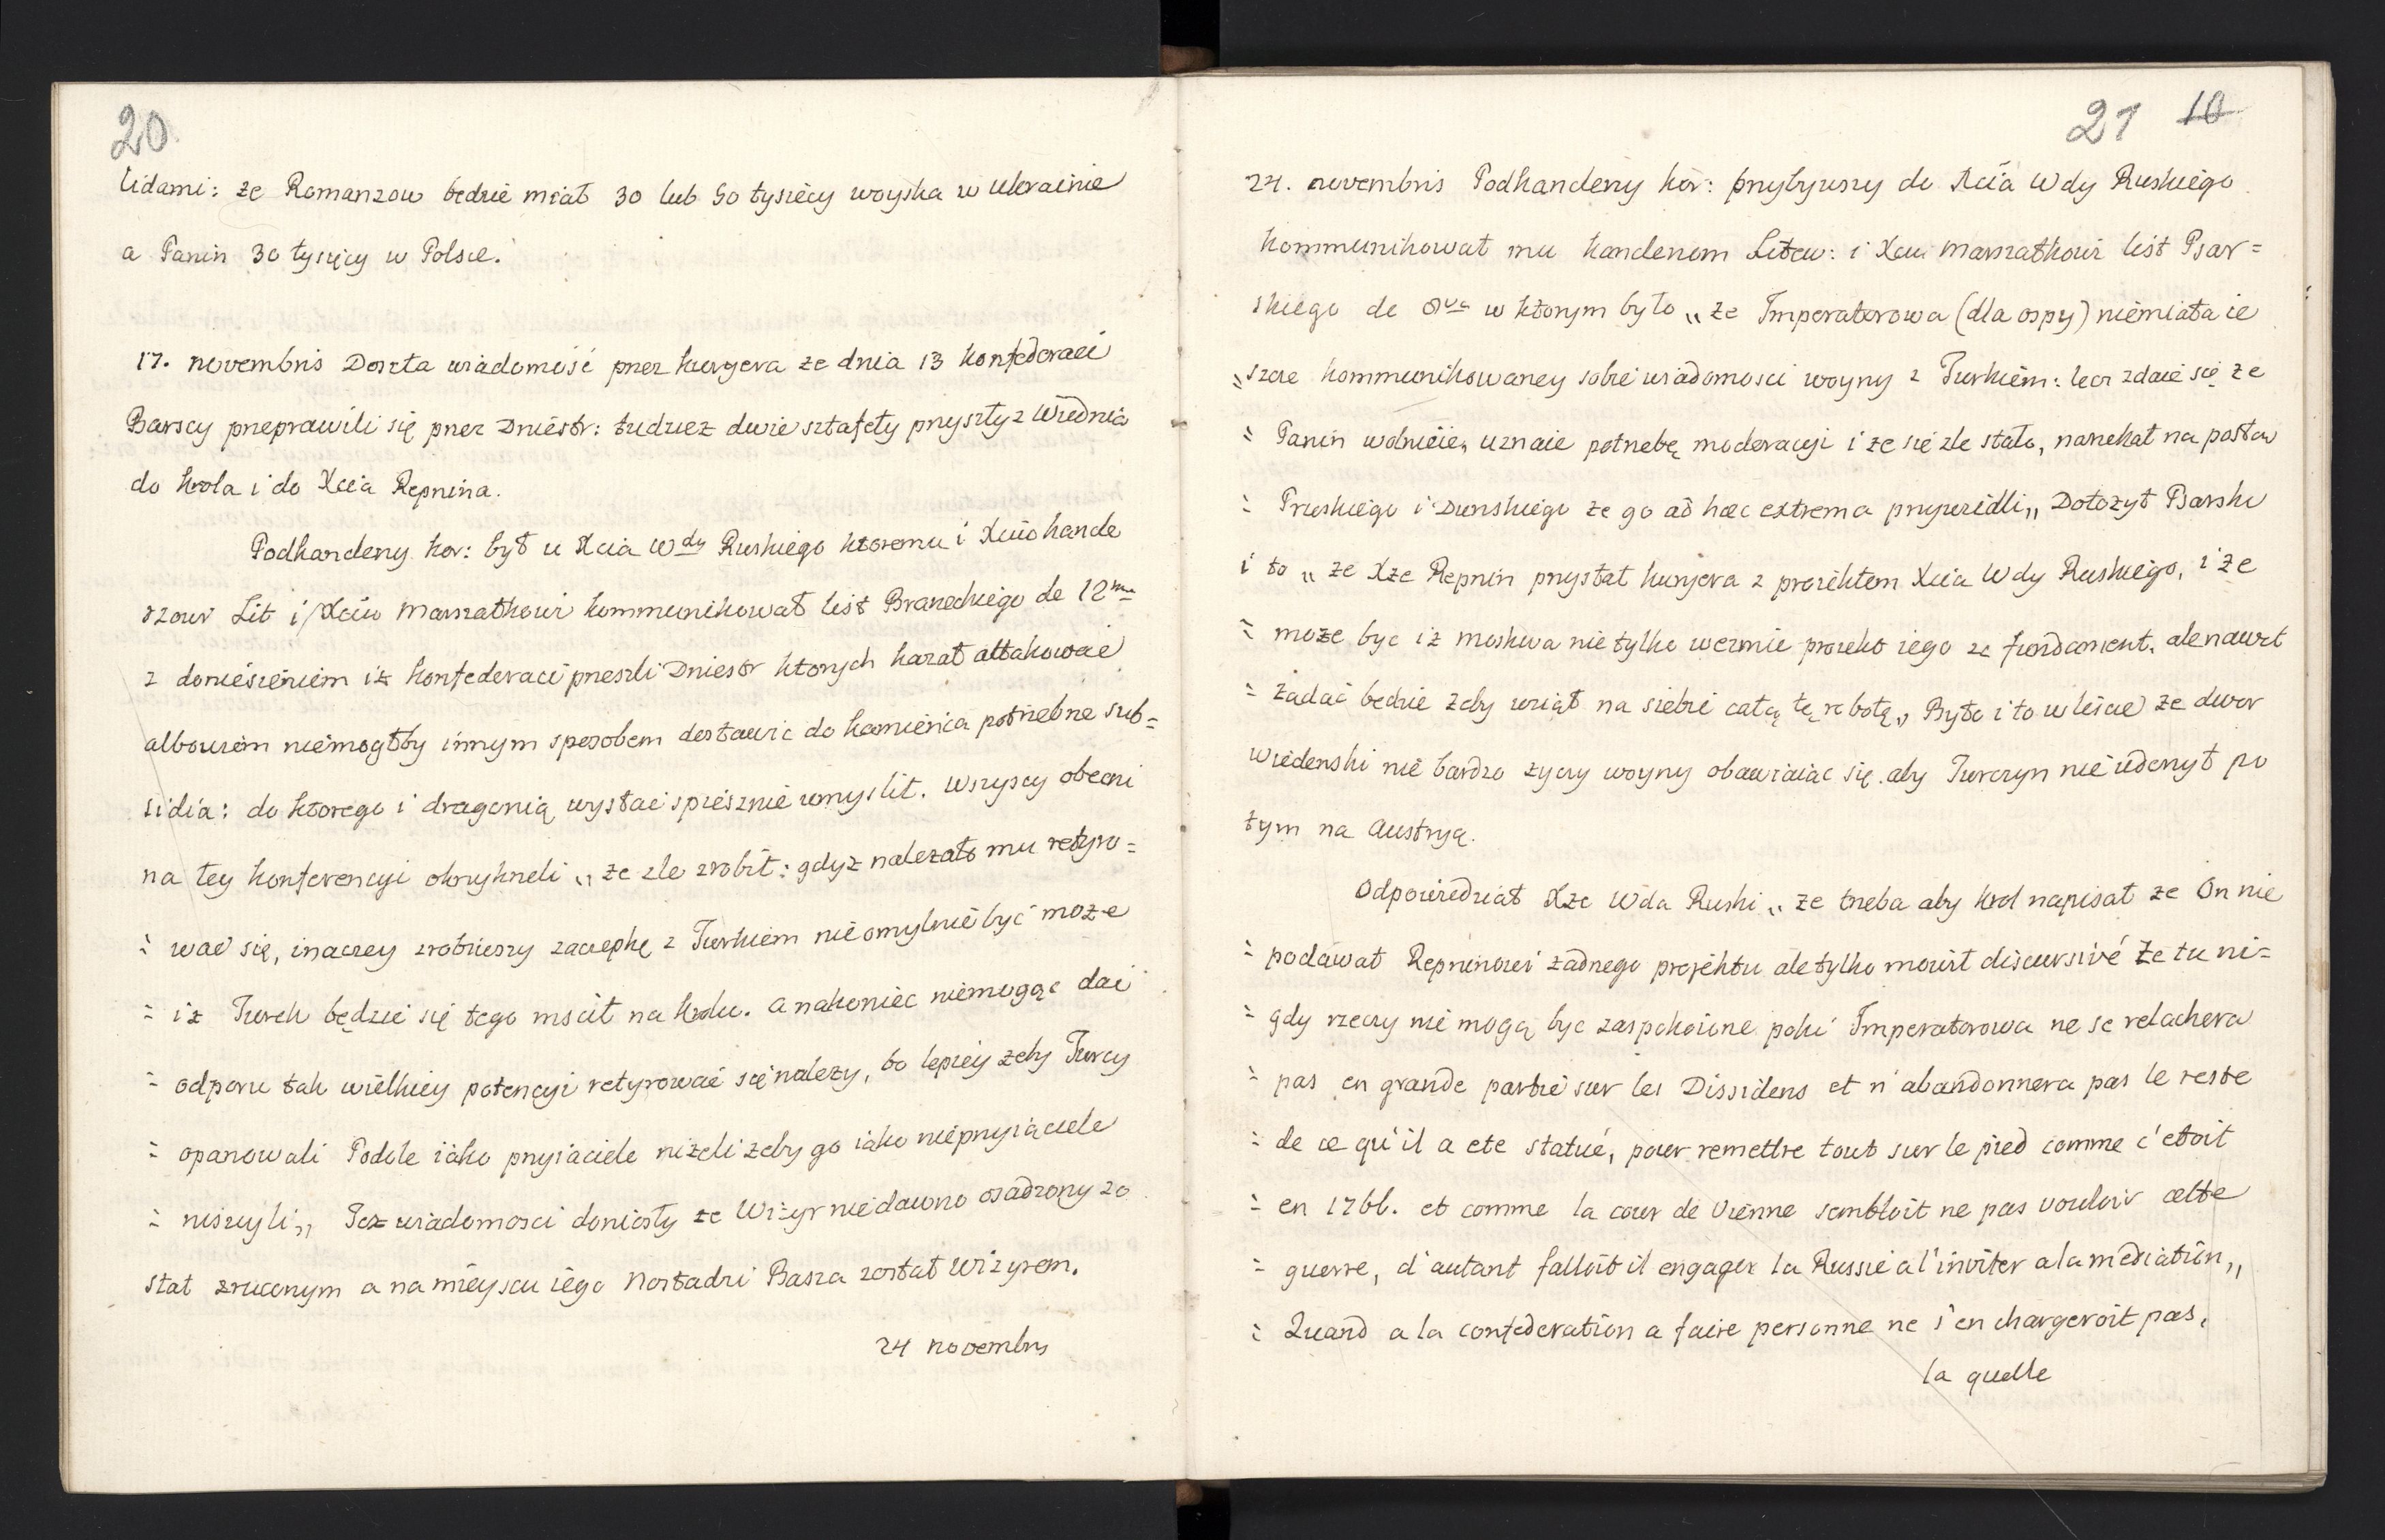 20
lidami: że Romanzow będzie miał 30 lub 50 tysięcy woyska w Ukrainie
a Panin 30 tysięcy w Polsce.
17. novembris Doszła wiadomość przez kuryera że dnia 13 konfederaci
Barscy przeprawili się przez Dniestr: tudzież dwie sztafety przyszły z Wiednia
do Krola i do Xcia Repnina.
Podkanclerzy kor: był u Xcia Wdy Ruskiego ktoremu i Xciu kancle
rzowi Lit i Xciu Marszałkowi kommunikował list Braneckiego de 12ma
z doniesieniem iż konfederaci przeszli Dniestr ktorych kazał attakować
albowiem niemogłby innym sposobem dostawic do Kamienca potrzebne sub=
sidia: do ktorego i dragonią wysłać spiesznie umyslił. Wszyscy obecni
na tey konferencyi okrzykneli „ że zle zrobił: gdyż należało mu retyro=
= wać się, inaczey zrobiwszy zaczepkę z Turkiem nieomylnie być może
= iż Turek będzie się tego mscił na Krolu. a nakoniec niemogąc dać
= odporu tak wielkiey potencyi retyrować się należy, bo lepiey żeby Turcy
= opanowali Podole iako przyiaciele niżeli żeby go iako nieprzyiaciele
= niszczyli„ Też wiadomosci doniosły że Wizyr niedawno osadzony zo
stał zrzuconym a na mieyscu iego Nostadzi Basza został Wizyrem.
24 novembris
21 10
24. novembris Podkanclerzy kor: przybywszy do Xcia Wdy Ruskiego
kommunikował mu kanclerzom Litew: i Xciu Marszałkowi list Psar=
skiego de 8va w ktorym było „ że Imperatorowa (dla ospy) niemiała ie
„ szcze kommunikowaney sobie wiadomosci woyny z Turkiem: lecz zdaie się że
= Panin wolnieie, uznaie potrzebę moderacyi i że się zle stało, narzekał na posłow
= Pruskiego i Dunskiego że go ad hæc extrema przywiedli„ Dołożył Psarski
i to „ że Xże Repnin przysłał kuryera z proiektem Xcia Wdy Ruskiego, i że
= może byc iż Moskwa nie tylko wezmie proiekt iego za fundament, ale nawet
= żądać będzie żeby wziął na siebie całą tę robotę„ Było i to w liscie że dwor
Wiedenski nie bardzo życzy woyny obawiaiac się aby Turczyn nie uderzył po
tym na Austryą.
Odpowiedział Xże Wda Ruski „ że trzeba aby Krol napisał że On nie
= podawał Repninowi żadnego projektu ale tylko mowił discursivé że tu ni=
= gdy rzeczy nie mogą byc zaspokoione poki Imperatorowa ne se relachera
= pas en grande partie sur les Dissidens et n'abandonnera pas le reste
= de ce qu'il a ete statué, pour remettre tout sur le pied comme c'etoit
= en 1766. et comme la cour de Vienne sembloit ne pas vouloir cette
= guerre, d'autant falloit il engager la Russie a l'inviter a la mediation„
= Quand a la confederation a faire personne ne s'en chargeroit pas,
la quelle